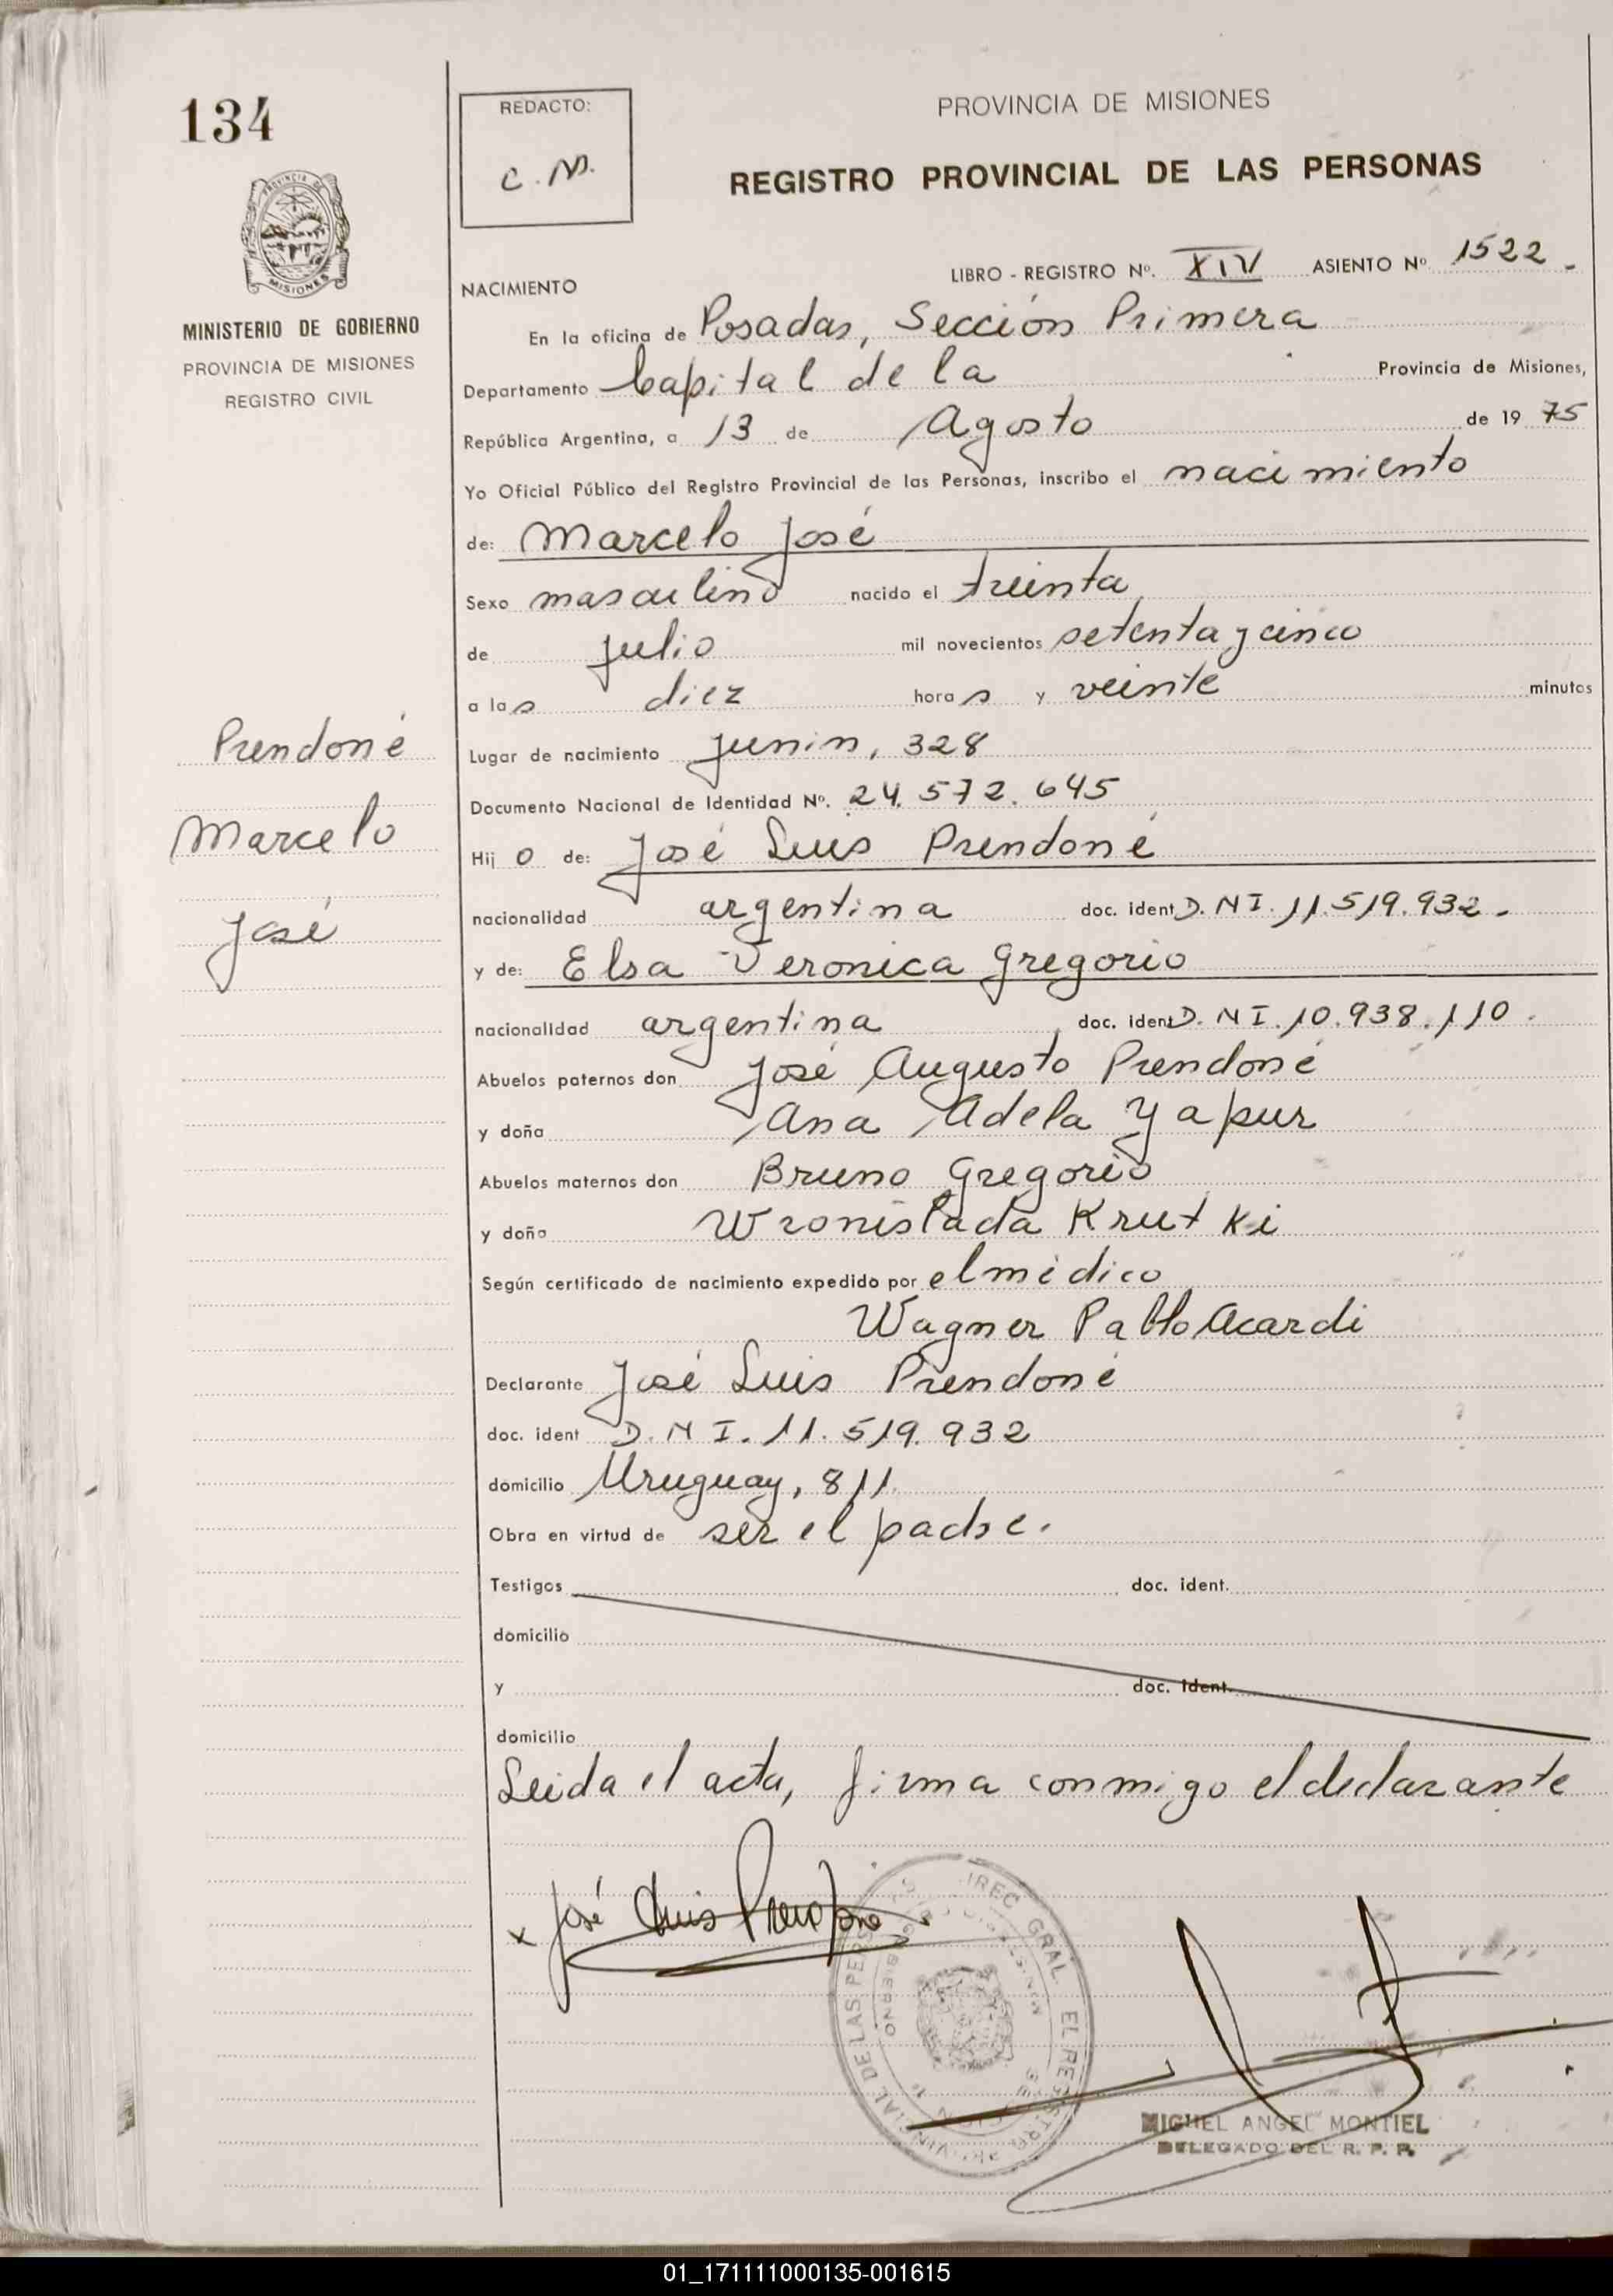 134
REDACTO:
C. M.
PROVINCIA DE MISIONES
REGISTRO PROVINCIAL DE LAS PERSONAS
MISIONES
MINISTERIO DE GOBIERNO
PROVINCIA DE MISIONES
REGISTRO CIVIL
LIBRO - REGISTRO Nº. XIV ASIENTO Nº 1522.-
NACIMIENTO
En la oficina de Posadas, Sección Primera
Departamento Capital de la Provincia de Misiones,
República Argentina, a 13 de Agosto de 19 75
Yo Oficial Público del Registro Provincial de las Personas, inscribo el nacimiento
de: Marcelo José
Sexo masculino nacido el treinta
de julio mil novecientos setenta y cinco
a las diez horas y veinte minutos
Lugar de nacimiento Junin, 328
Documento Nacional de Identidad Nº. 24.572.645
Hijo de: José Luis Prendoné
nacionalidad argentina doc. ident D.N I. 11.519.932.-
y de: Elsa Veronica Gregorio
nacionalidad argentina doc. ident D.N I. 10.938.110.
Abuelos paternos don José Augusto Prendoné
y doña Ana Adela Yapur
Abuelos maternos don Bruno Gregorio
y doña Wronislada Krutki
Según certificado de nacimiento expedido por el médico
Wagner Pablo Acardi
Declarante José Luis Prendoné
doc. ident D.N I. 11.519.932
domicilio Uruguay, 811
Obra en virtud de ser el padre.
Testigos doc. ident.
domicilio
y doc. ident.
domicilio
Leida el acta, firma conmigo el declarante
Prendoné
Marcelo
José
x José Luis Prendone
MIGUEL ANGEL MONTIEL
DELEGADO DEL R. P. P.
01_171111000135-001615